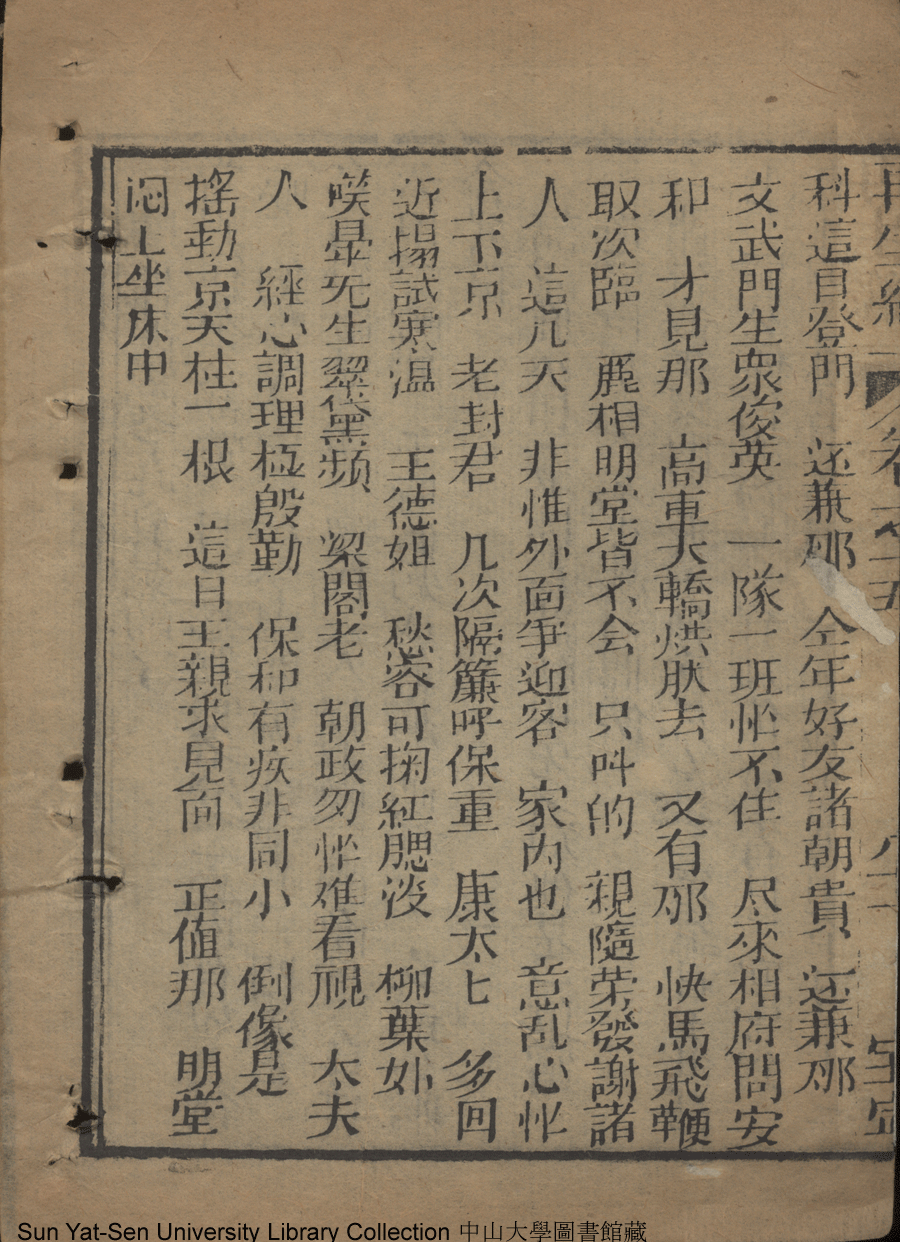 再生緣 卷之十五
科這日登門　还兼那　仝年好友諸朝貴　还兼那
文武門生衆俊英　一隊一班忙不住　尽來相府問安
和　才見那　高車大轎烘肰去　又有那　快馬飛鞭
取次臨　酈相明堂皆不会　只叫的　親隨荣發謝諸
人　這几天　非惟外面爭迎客　家内也　意乱心忙
上下京　老封君　几次隔簾呼保重　康太匕　多回
近搨試寒温　王德姐　愁容可掬紅腮淡　柳葉妳
嘆暈死生翠黛頻　梁閣老　朝政匆忙难看視　太夫
人　經心調理極殷勤　保和有疾非同小　倒像是
搖動京天柱一根　這日王親求見面　正值那　明堂
闷上坐床中
Sun Yat-Sen University Library Collection 中山大學圖書館藏